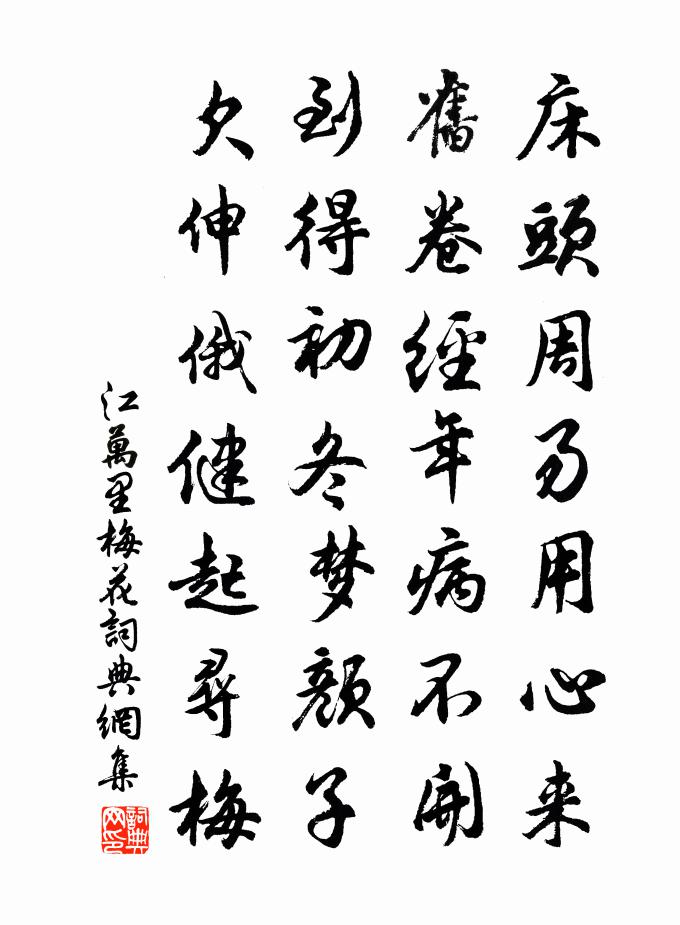 床頭周易用心来
舊卷經年病不開
到得初冬梦顔子
欠伸俄健起尋梅
江萬里梅花詞典網集
詞典网印